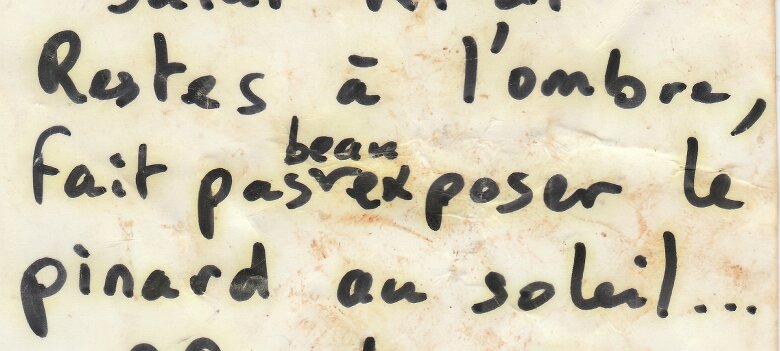 Restes à l'ombre,
fait pas beau exposer le
pinard au soleil...